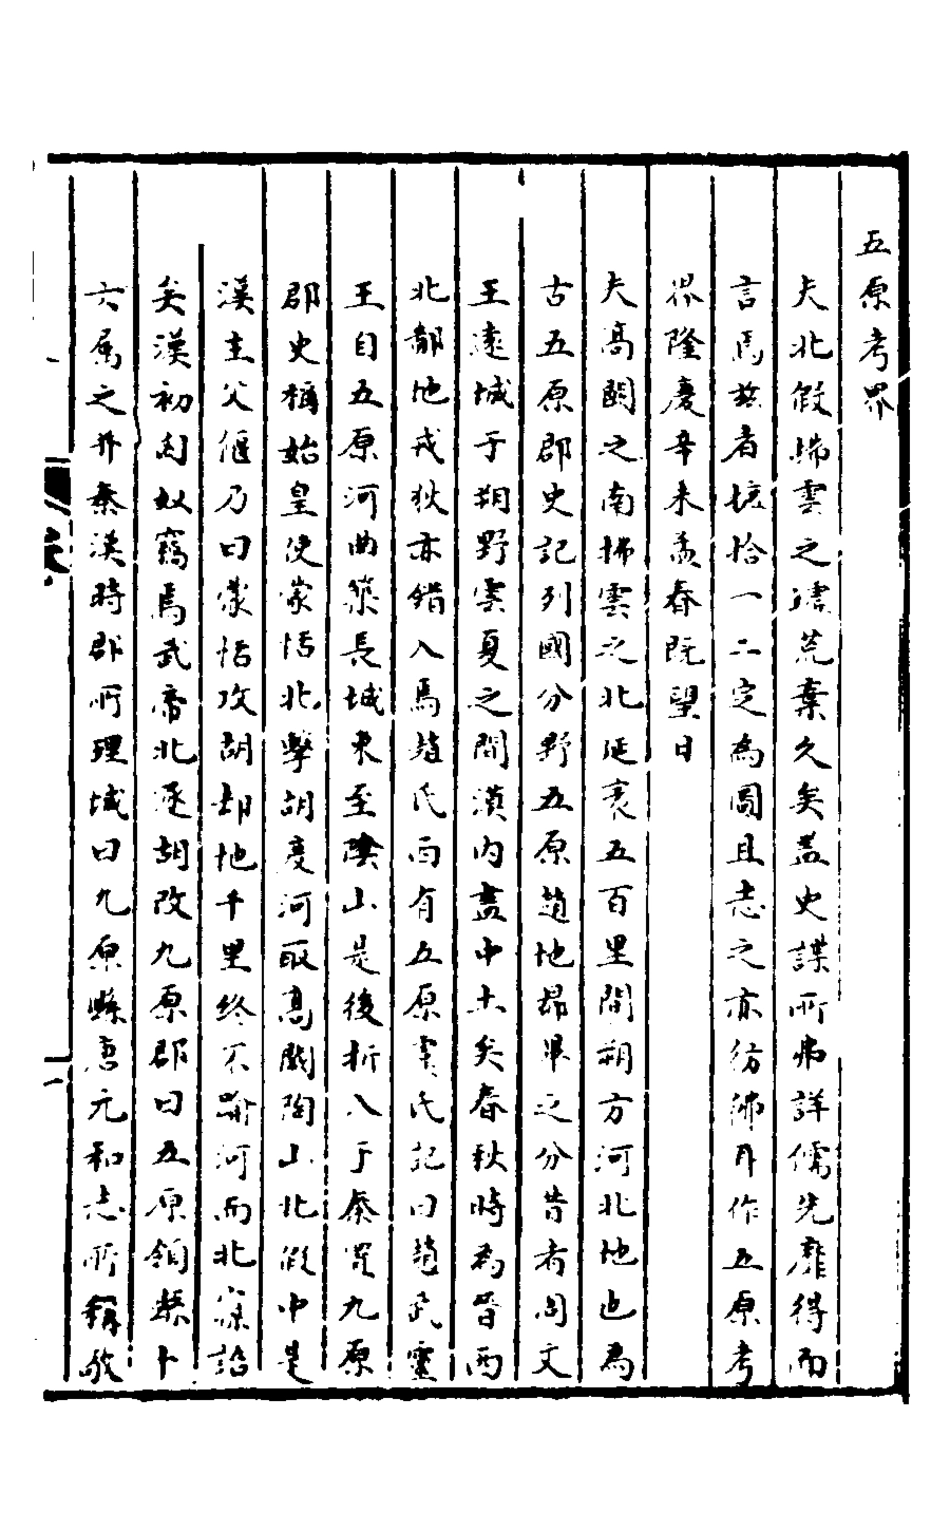 五原考畧
夫北假搗雲之墟荒棄久矣盖史諜所弗詳儒先靡得而
言焉茲者攟拾一二定為圖且志之亦彷彿耳作五原考
畧隆慶辛未孟春既望日
夫高闕之南拂雲之北延袤五百里間朔方河北地也為
古五原郡史記列國分野五原趙地昴畢之分昔者周文
王遠城于朔野虞夏之間漠内盡中土矣春秋時為晉西
北鄙地戎狄亦錯入焉趙氏而有五原虞氏記曰趙武靈
王自五原河曲築長城東至陰山是後折入于秦置九原
郡史稱始皇使蒙恬北擊胡度河取高闕陶山北假中是
漢主父偃乃曰蒙恬攻胡却地千里終不踰河而北寔詒
矣漢初匈奴竊焉武帝北逐胡改九原郡曰五原領縣十
六属之并秦漢時郡所理城曰九原縣唐元和志所稱敬